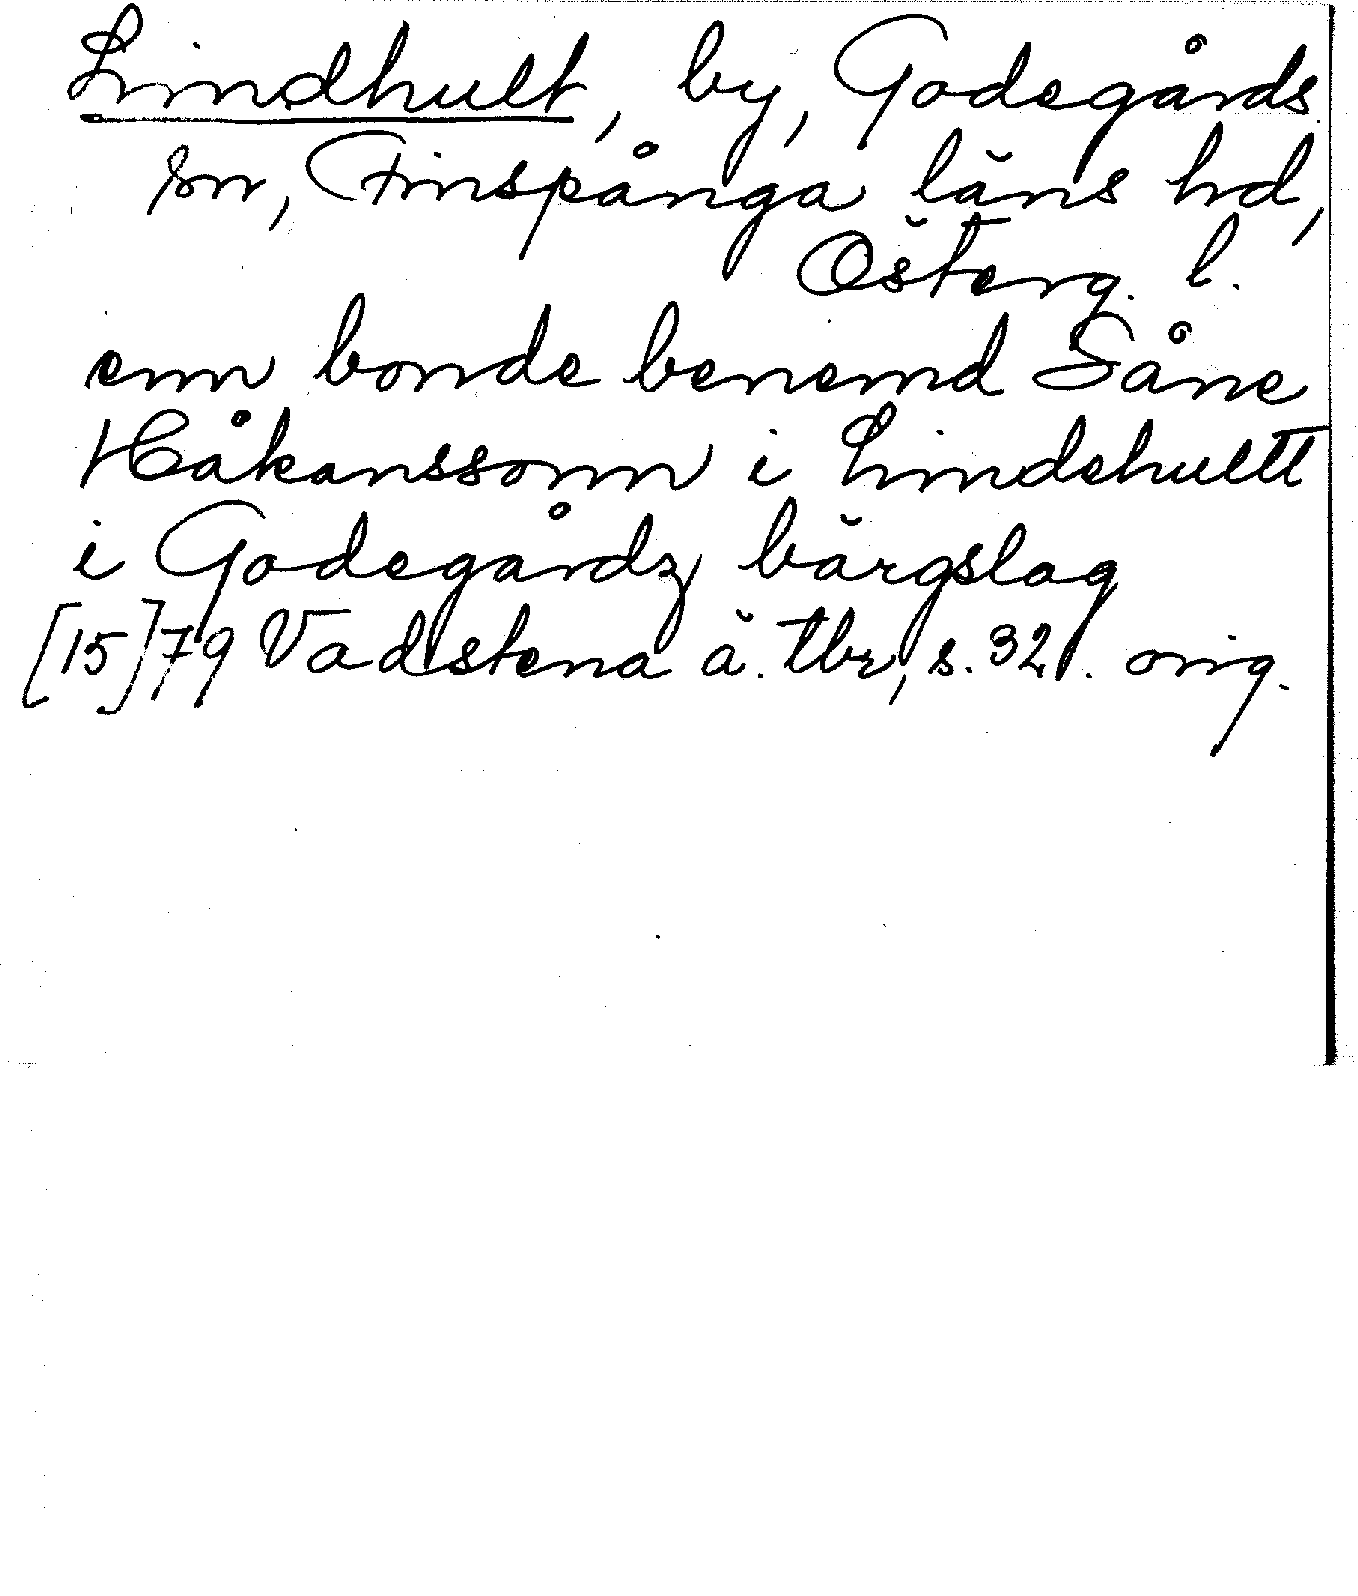 Lindhult, by, Godegårds
sn, Finspånga läns hd,
Österg. l.
enn bonde benemd Såne
Håkanssonn i Lindehultt
i Godegårdz bärgslag
[15]79 Vadstena ä. tbr, s. 321. orig.